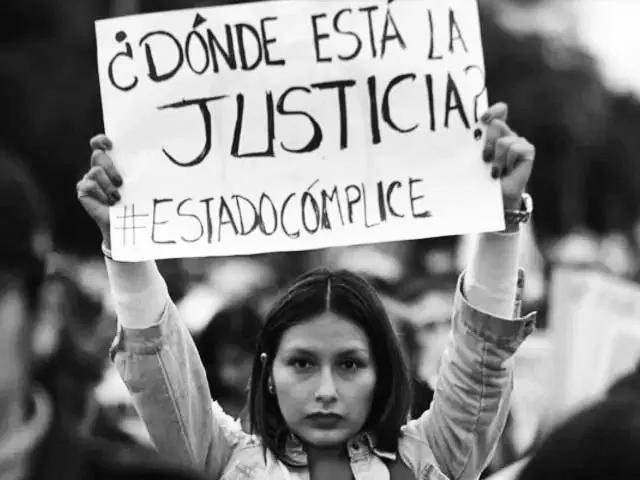 ¿DÓNDE ESTÁ LA
JUSTICIA?
#ESTADOCÓMPLICE